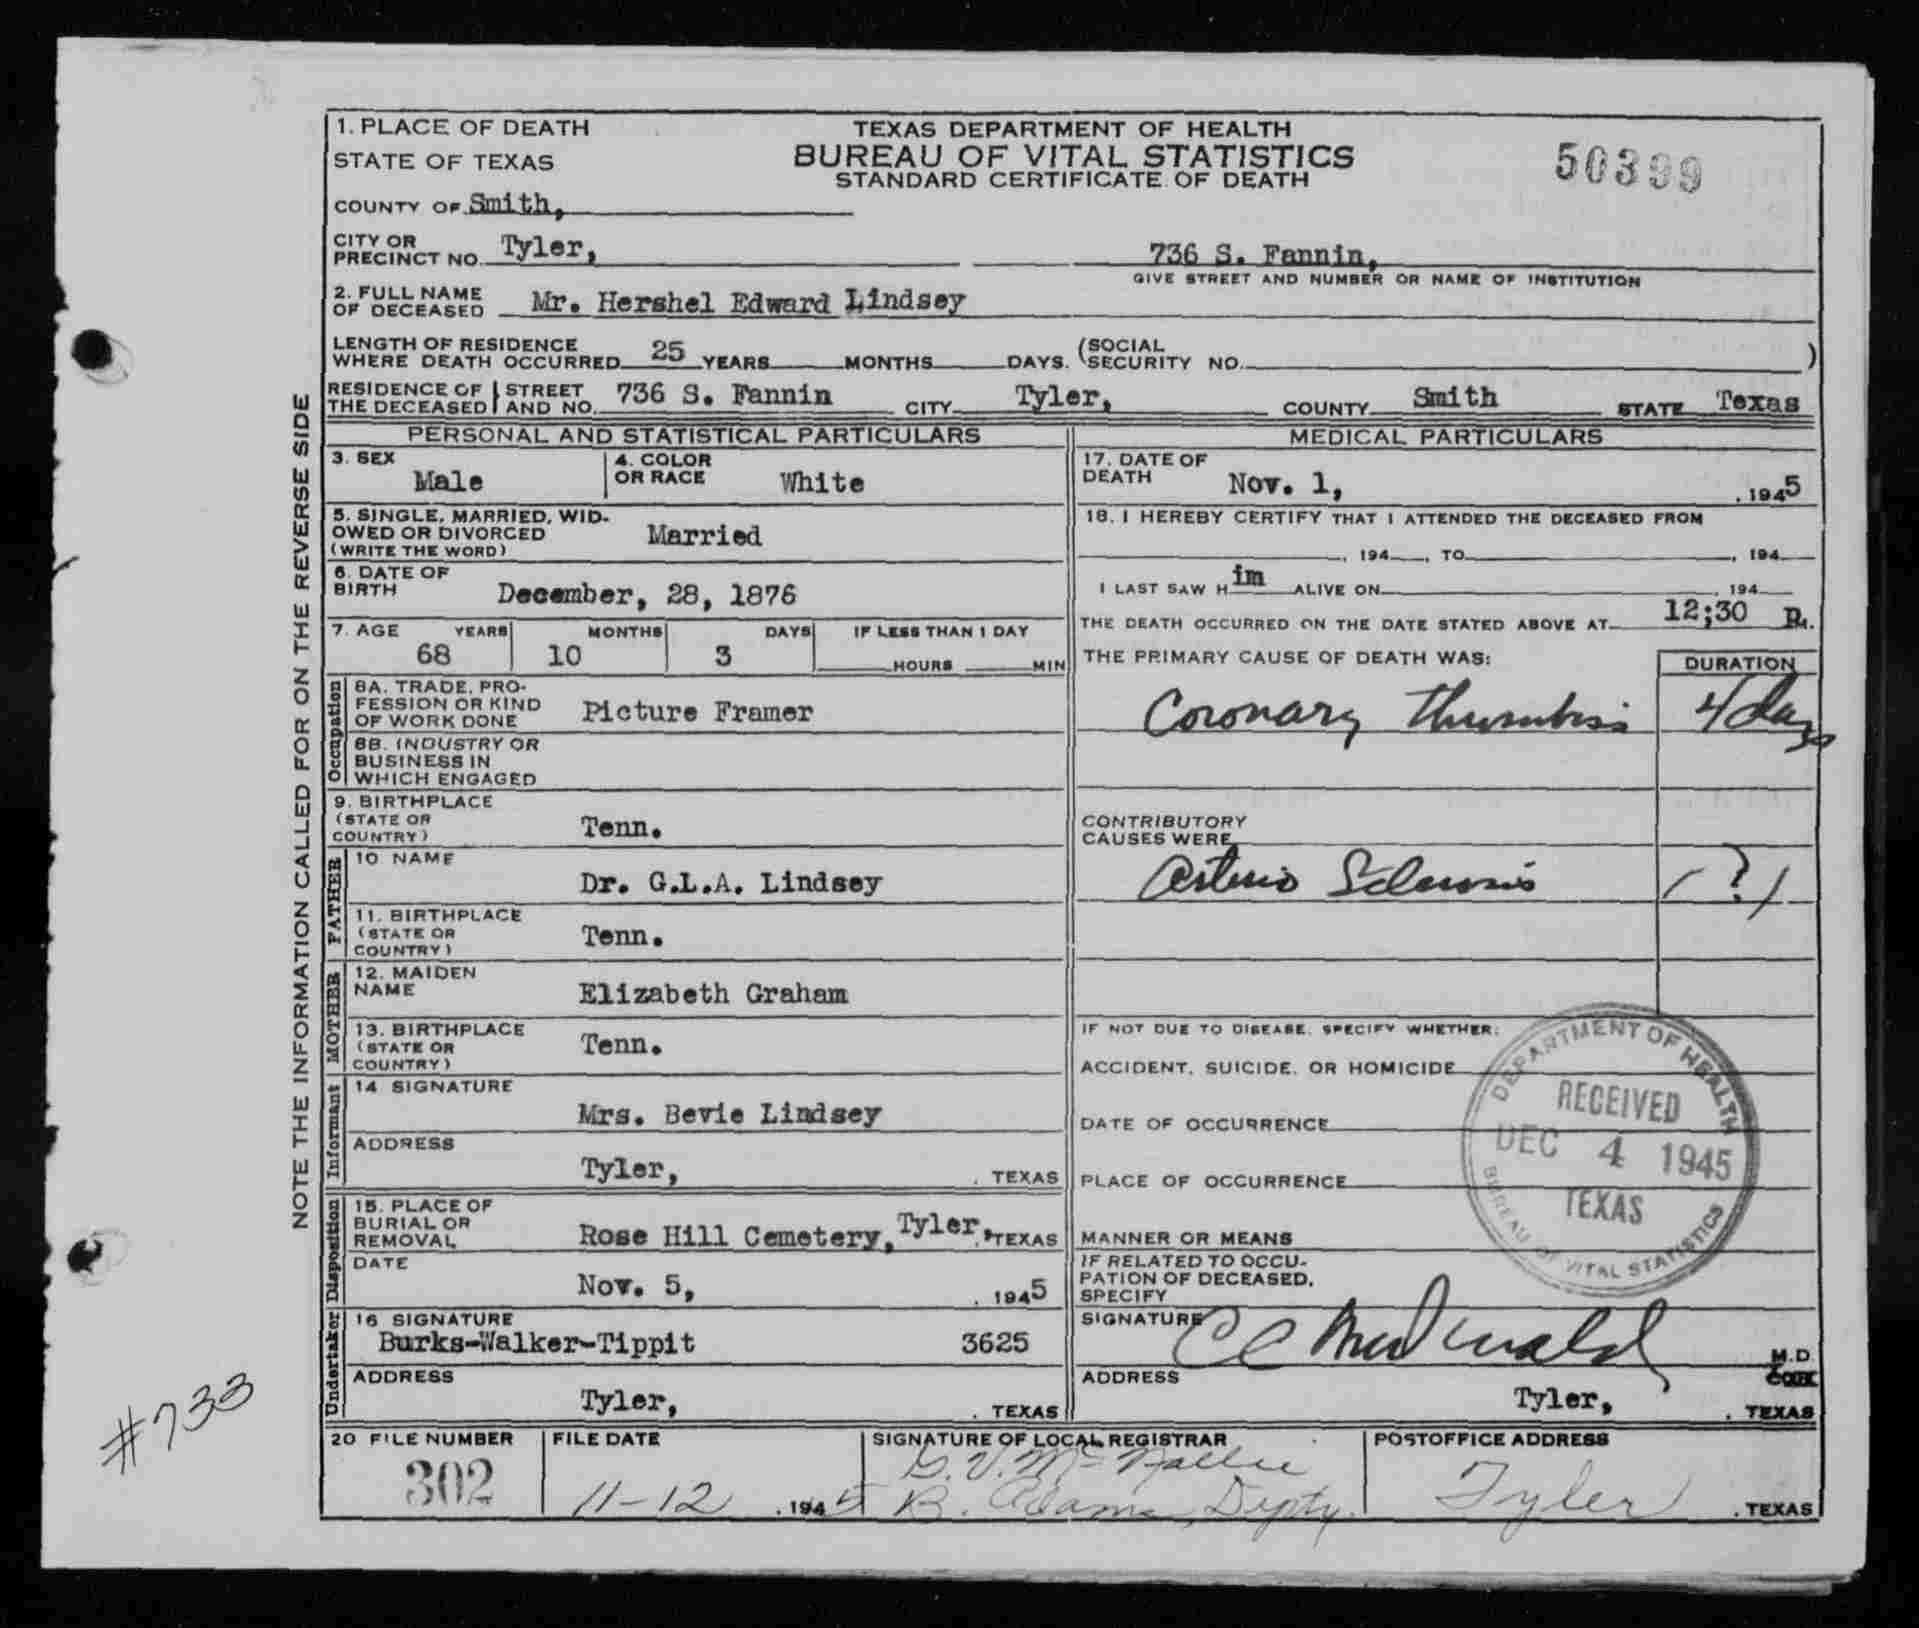 1. PLACE OF DEATH
STATE OF TEXAS
TEXAS DEPARTMENT OF HEALTH
BUREAU OF VITAL STATISTICS
STANDARD CERTIFICATE OF DEATH
50399
COUNTY OF Smith,
CITY OR PRECINCT NO. Tyler, 736 S. Fannin,
GIVE STREET AND NUMBER OR NAME OF INSTITUTION
2. FULL NAME OF DECEASED Mr. Hershel Edward Lindsey
LENGTH OF RESIDENCE WHERE DEATH OCCURRED 25 YEARS MONTHS DAYS. (SOCIAL SECURITY NO. )
RESIDENCE OF THE DECEASED STREET AND NO. 736 S. Fannin CITY Tyler, COUNTY Smith STATE Texas
PERSONAL AND STATISTICAL PARTICULARS
3. SEX Male
4. COLOR OR RACE White
5. SINGLE, MARRIED, WIDOWED OR DIVORCED (WRITE THE WORD) Married
6. DATE OF BIRTH December, 28, 1876
7. AGE YEARS MONTHS DAYS IF LESS THAN 1 DAY
68 10 3 HOURS MIN
Occupation
8A. TRADE, PROFESSION OR KIND OF WORK DONE Picture Framer
8B. INDUSTRY OR BUSINESS IN WHICH ENGAGED
9. BIRTHPLACE (STATE OR COUNTRY) Tenn.
FATHER
10 NAME Dr. G.L.A. Lindsey
11. BIRTHPLACE (STATE OR COUNTRY) Tenn.
MOTHER
12. MAIDEN NAME Elizabeth Graham
13. BIRTHPLACE (STATE OR COUNTRY) Tenn.
Informant
14 SIGNATURE Mrs. Bevie Lindsey
ADDRESS Tyler, , TEXAS
Disposition
15. PLACE OF BURIAL OR REMOVAL Rose Hill Cemetery, Tyler, , TEXAS
DATE Nov. 5, , 1945
Undertaker
16 SIGNATURE
Burks-Walker-Tippit 3625
ADDRESS Tyler, , TEXAS
MEDICAL PARTICULARS
17. DATE OF DEATH Nov. 1, , 1945
18. I HEREBY CERTIFY THAT I ATTENDED THE DECEASED FROM
, 194 , TO , 194
I LAST SAW H im ALIVE ON , 194
THE DEATH OCCURRED ON THE DATE STATED ABOVE AT 12;30 P.
THE PRIMARY CAUSE OF DEATH WAS: DURATION
Coronary Thrombosis 4 days
CONTRIBUTORY CAUSES WERE
Arterio Sclerosis (?)
IF NOT DUE TO DISEASE, SPECIFY WHETHER:
ACCIDENT, SUICIDE, OR HOMICIDE
DATE OF OCCURRENCE
PLACE OF OCCURRENCE
MANNER OR MEANS
IF RELATED TO OCCUPATION OF DECEASED, SPECIFY
DEPARTMENT OF HEALTH
RECEIVED
DEC 4 1945
TEXAS
BUREAU OF VITAL STATISTICS
SIGNATURE C C M.D.
ADDRESS Tyler, , TEXAS
20 FILE NUMBER 302
FILE DATE 11-12 , 1945
SIGNATURE OF LOCAL REGISTRAR
G. V. Mc
B. Adams, Depty.
POSTOFFICE ADDRESS
Tyler , TEXAS
NOTE THE INFORMATION CALLED FOR ON THE REVERSE SIDE
#733